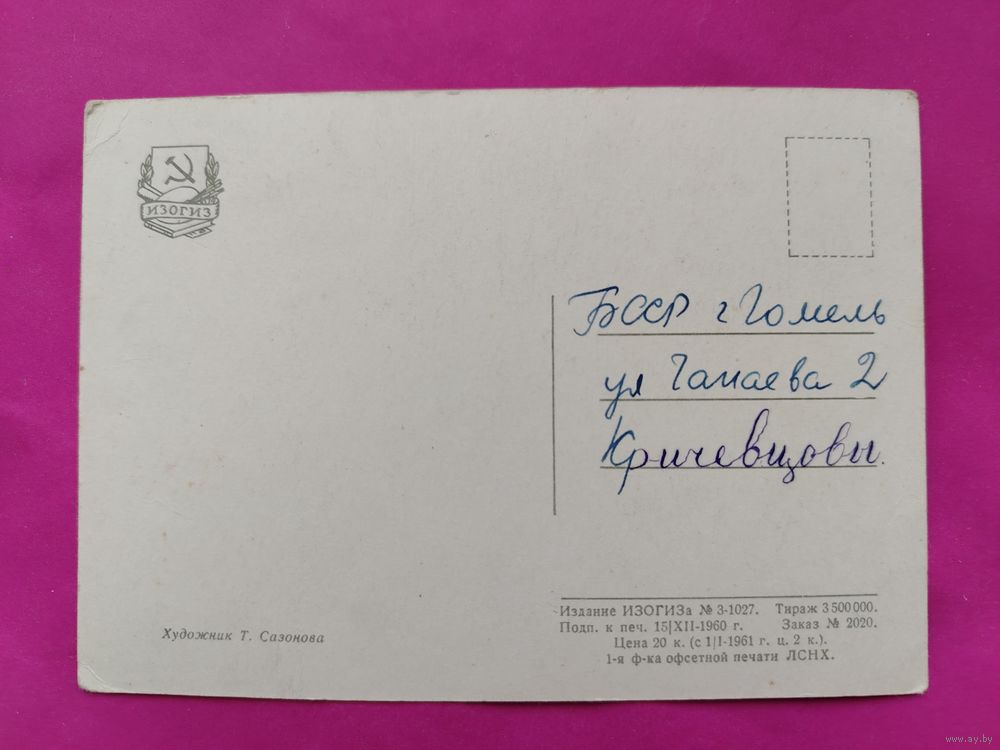 ИЗОГИЗ
БССР г Гомель
ул Гамаева 2
Кричевцовы
Художник Т. Сазонова
Издание ИЗОГИЗа № 3-1027. Тираж 3 500 000.
Подп. к печ. 15|XII-1960 г. Заказ № 2020.
Цена 20 к. (с 1|I-1961 г. ц. 2 к.).
1-я ф-ка офсетной печати ЛСНХ.
www.ay.by